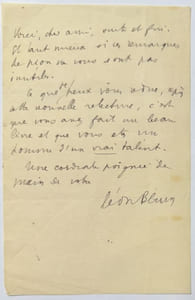 Voici, cher ami, voilà est fini.
Il vaut mieux si ces remarques
de pion ne vous sont pas
inutiles.
Ce que je peux vous dire, après
cette nouvelle relecture, c'est
que vous avez fait un beau
livre et que vous êtes un
homme d'un vrai talent.
Une cordiale poignée de
main de votre
Léon Blum